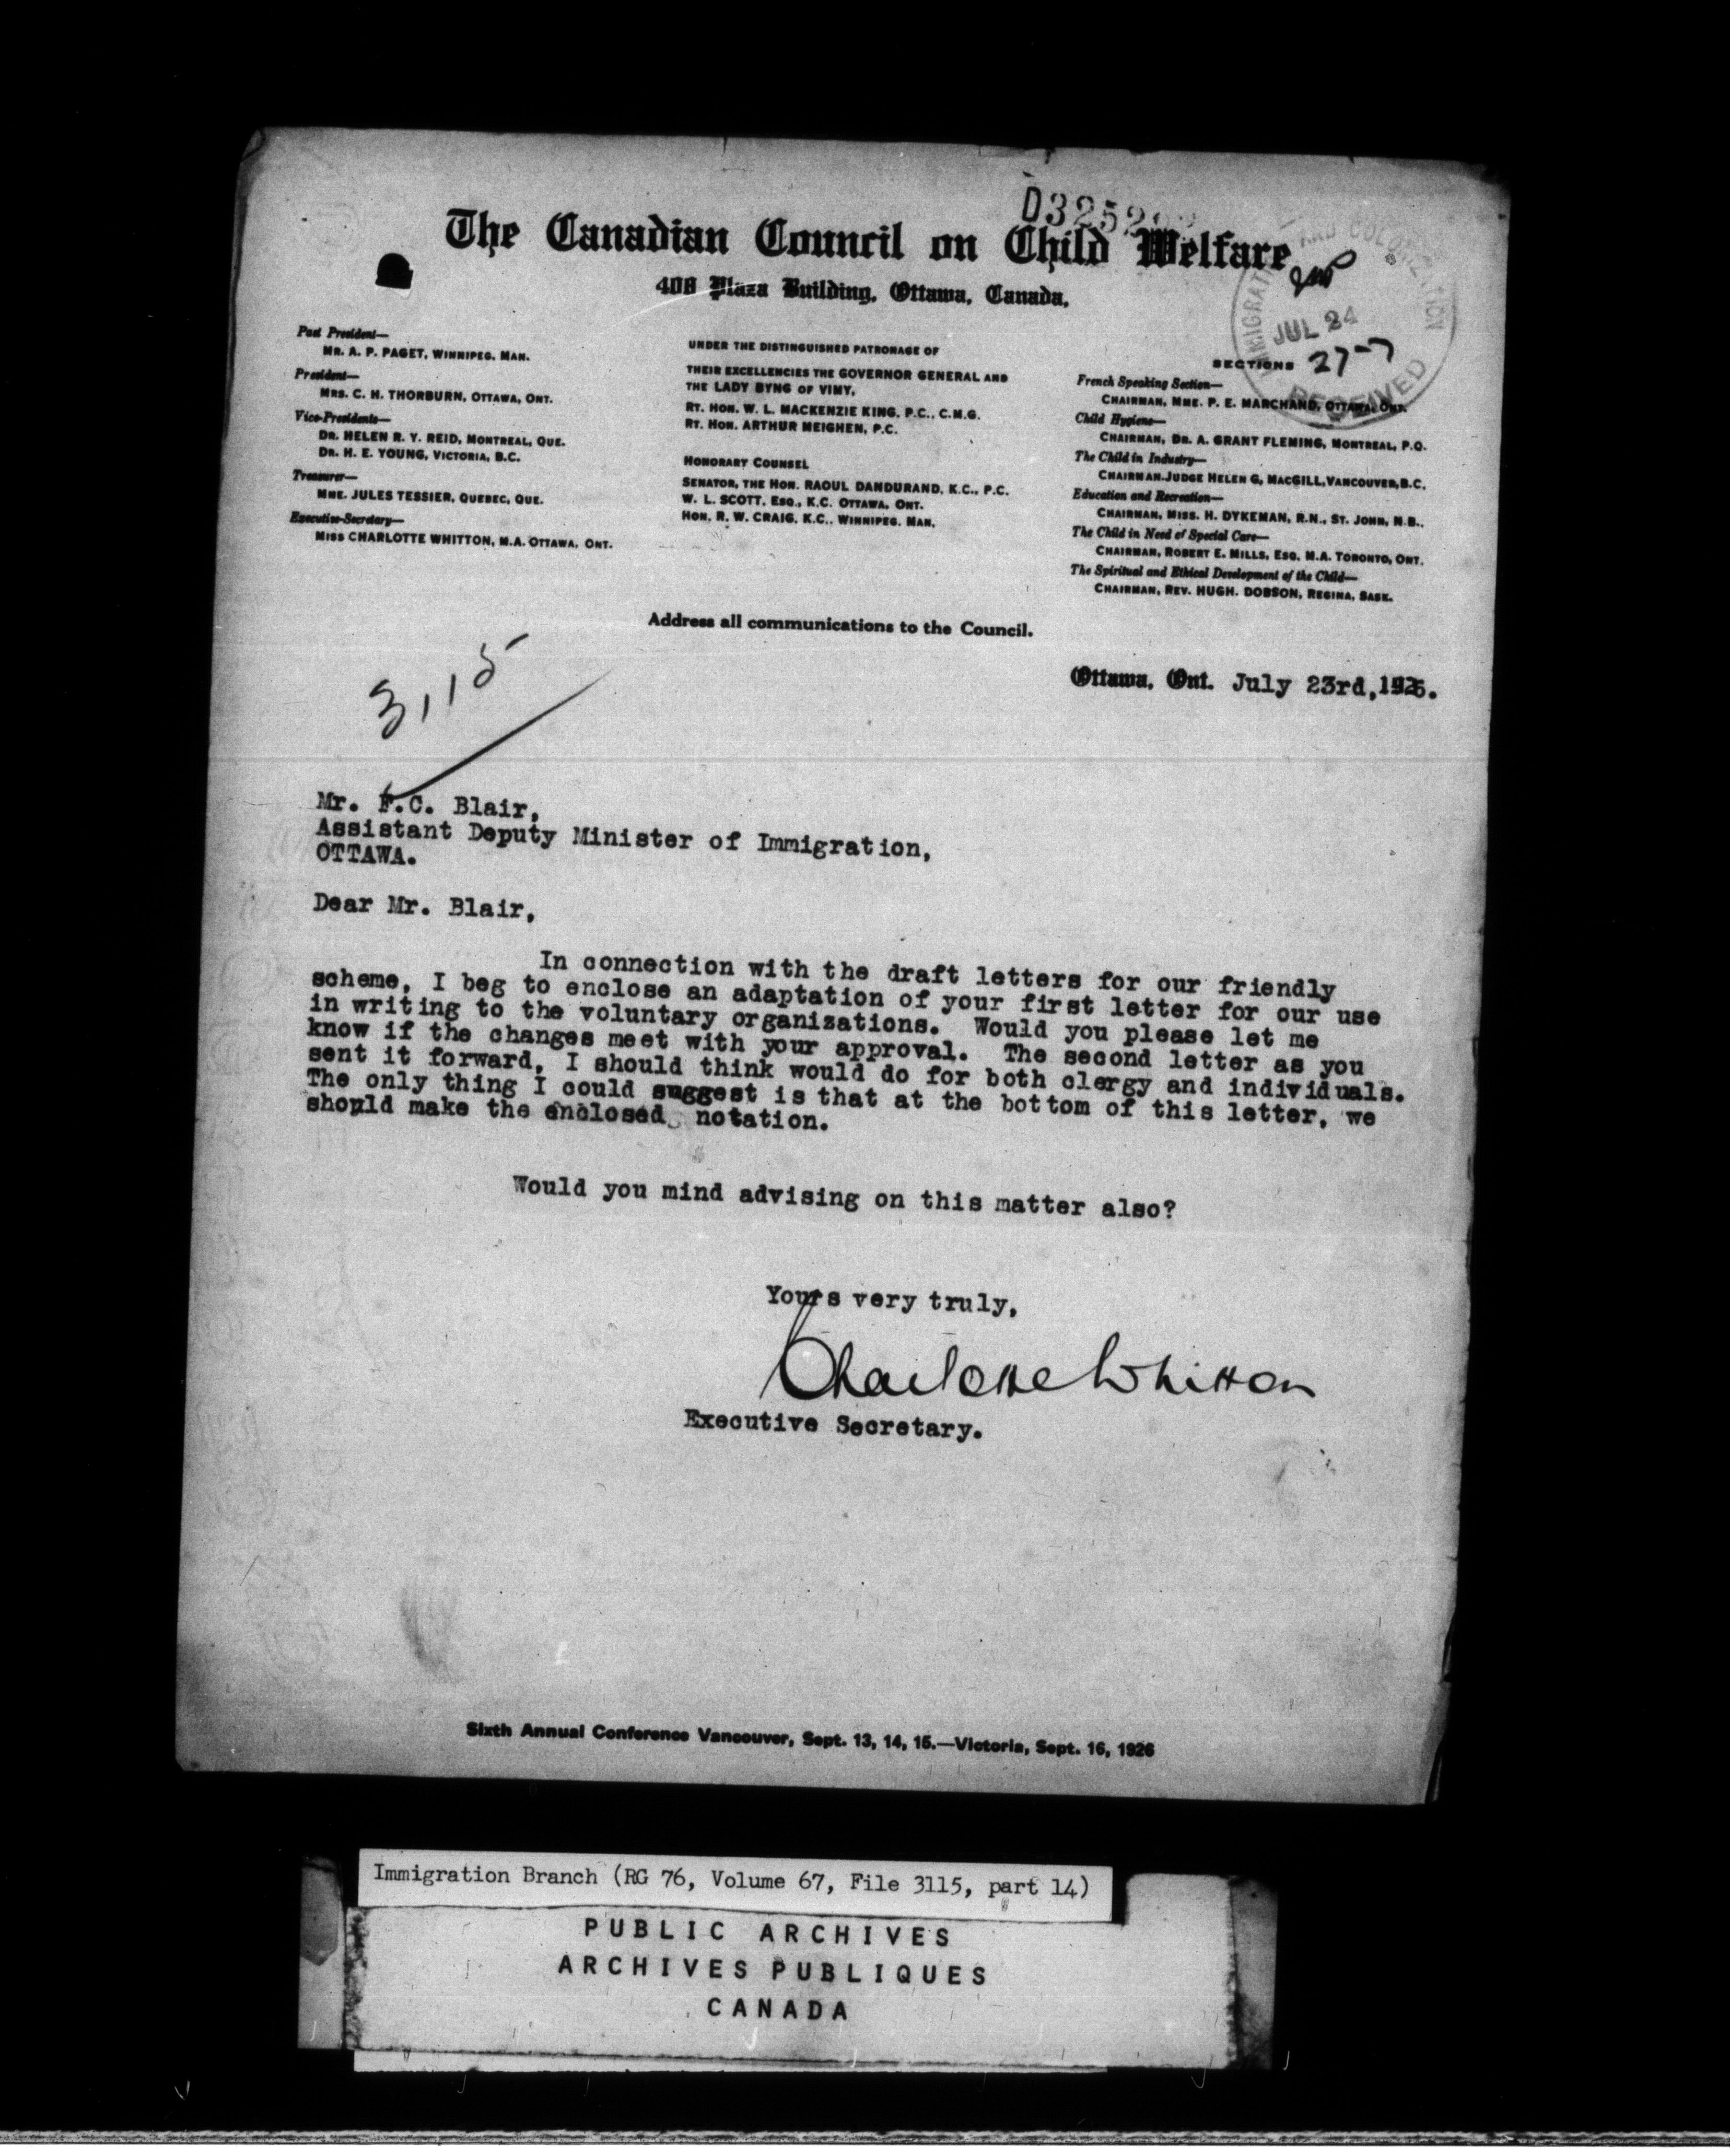 D3252
The Canadian Council on Child Welfare
408 Plaza Building, Ottawa, Canada.
IMMIGRATION AND COLONIZATION
JUL 24
27-7
RECEIVED
Past President—
MR. A. P. PAGET, WINNIPEG, MAN.
President—
MRS. C. H. THORBURN, OTTAWA, ONT.
Vice-Presidents—
DR. HELEN R. Y. REID, MONTREAL, QUE.
DR. H. E. YOUNG, VICTORIA, B.C.
Treasurer—
MME. JULES TESSIER, QUEBEC, QUE.
Executive-Secretary—
MISS CHARLOTTE WHITTON, M.A. OTTAWA, ONT.
UNDER THE DISTINGUISHED PATRONAGE OF
THEIR EXCELLENCIES THE GOVERNOR GENERAL AND
THE LADY BYNG OF VIMY,
RT. HON. W. L. MACKENZIE KING, P.C., C.M.G.
RT. HON. ARTHUR MEIGHEN, P.C.
HONORARY COUNSEL
SENATOR, THE HON. RAOUL DANDURAND, K.C., P.C.
W. L. SCOTT, ESQ., K.C. OTTAWA, ONT.
HON. R. W. CRAIG, K.C., WINNIPEG, MAN.
SECTIONS
French Speaking Section—
CHAIRMAN, MME. P. E. MARCHAND, OTTAWA, ONT.
Child Hygiene—
CHAIRMAN, DR. A. GRANT FLEMING, MONTREAL, P.Q.
The Child in Industry—
CHAIRMAN.JUDGE HELEN G, MACGILL,VANCOUVER,B.C.
Education and Recreation—
CHAIRMAN, MISS. H. DYKEMAN, R.N., ST. JOHN, N.B..
The Child in Need of Special Care—
CHAIRMAN, ROBERT E. MILLS, ESQ. M.A. TORONTO, ONT.
The Spiritual and Ethical Development of the Child—
CHAIRMAN, REV. HUGH. DOBSON, REGINA, SASK.
Address all communications to the Council.
3115
Ottawa, Ont. July 23rd,1926.
Mr. F.C. Blair,
Assistant Deputy Minister of Immigration,
OTTAWA.
Dear Mr. Blair,
In connection with the draft letters for our friendly
scheme, I beg to enclose an adaptation of your first letter for our use
in writing to the voluntary organizations. Would you please let me
know if the changes meet with your approval. The second letter as you
sent it forward, I should think would do for both clergy and individuals.
The only thing I could suggest is that at the bottom of this letter, we
should make the enclosed notation.
Would you mind advising on this matter also?
Yours very truly,
Charlotte Whitton
Executive Secretary.
Sixth Annual Conference Vancouver, Sept. 13, 14, 15.—Victoria, Sept. 16, 1926
Immigration Branch (RG 76, Volume 67, File 3115, part 14)
PUBLIC ARCHIVES
ARCHIVES PUBLIQUES
CANADA